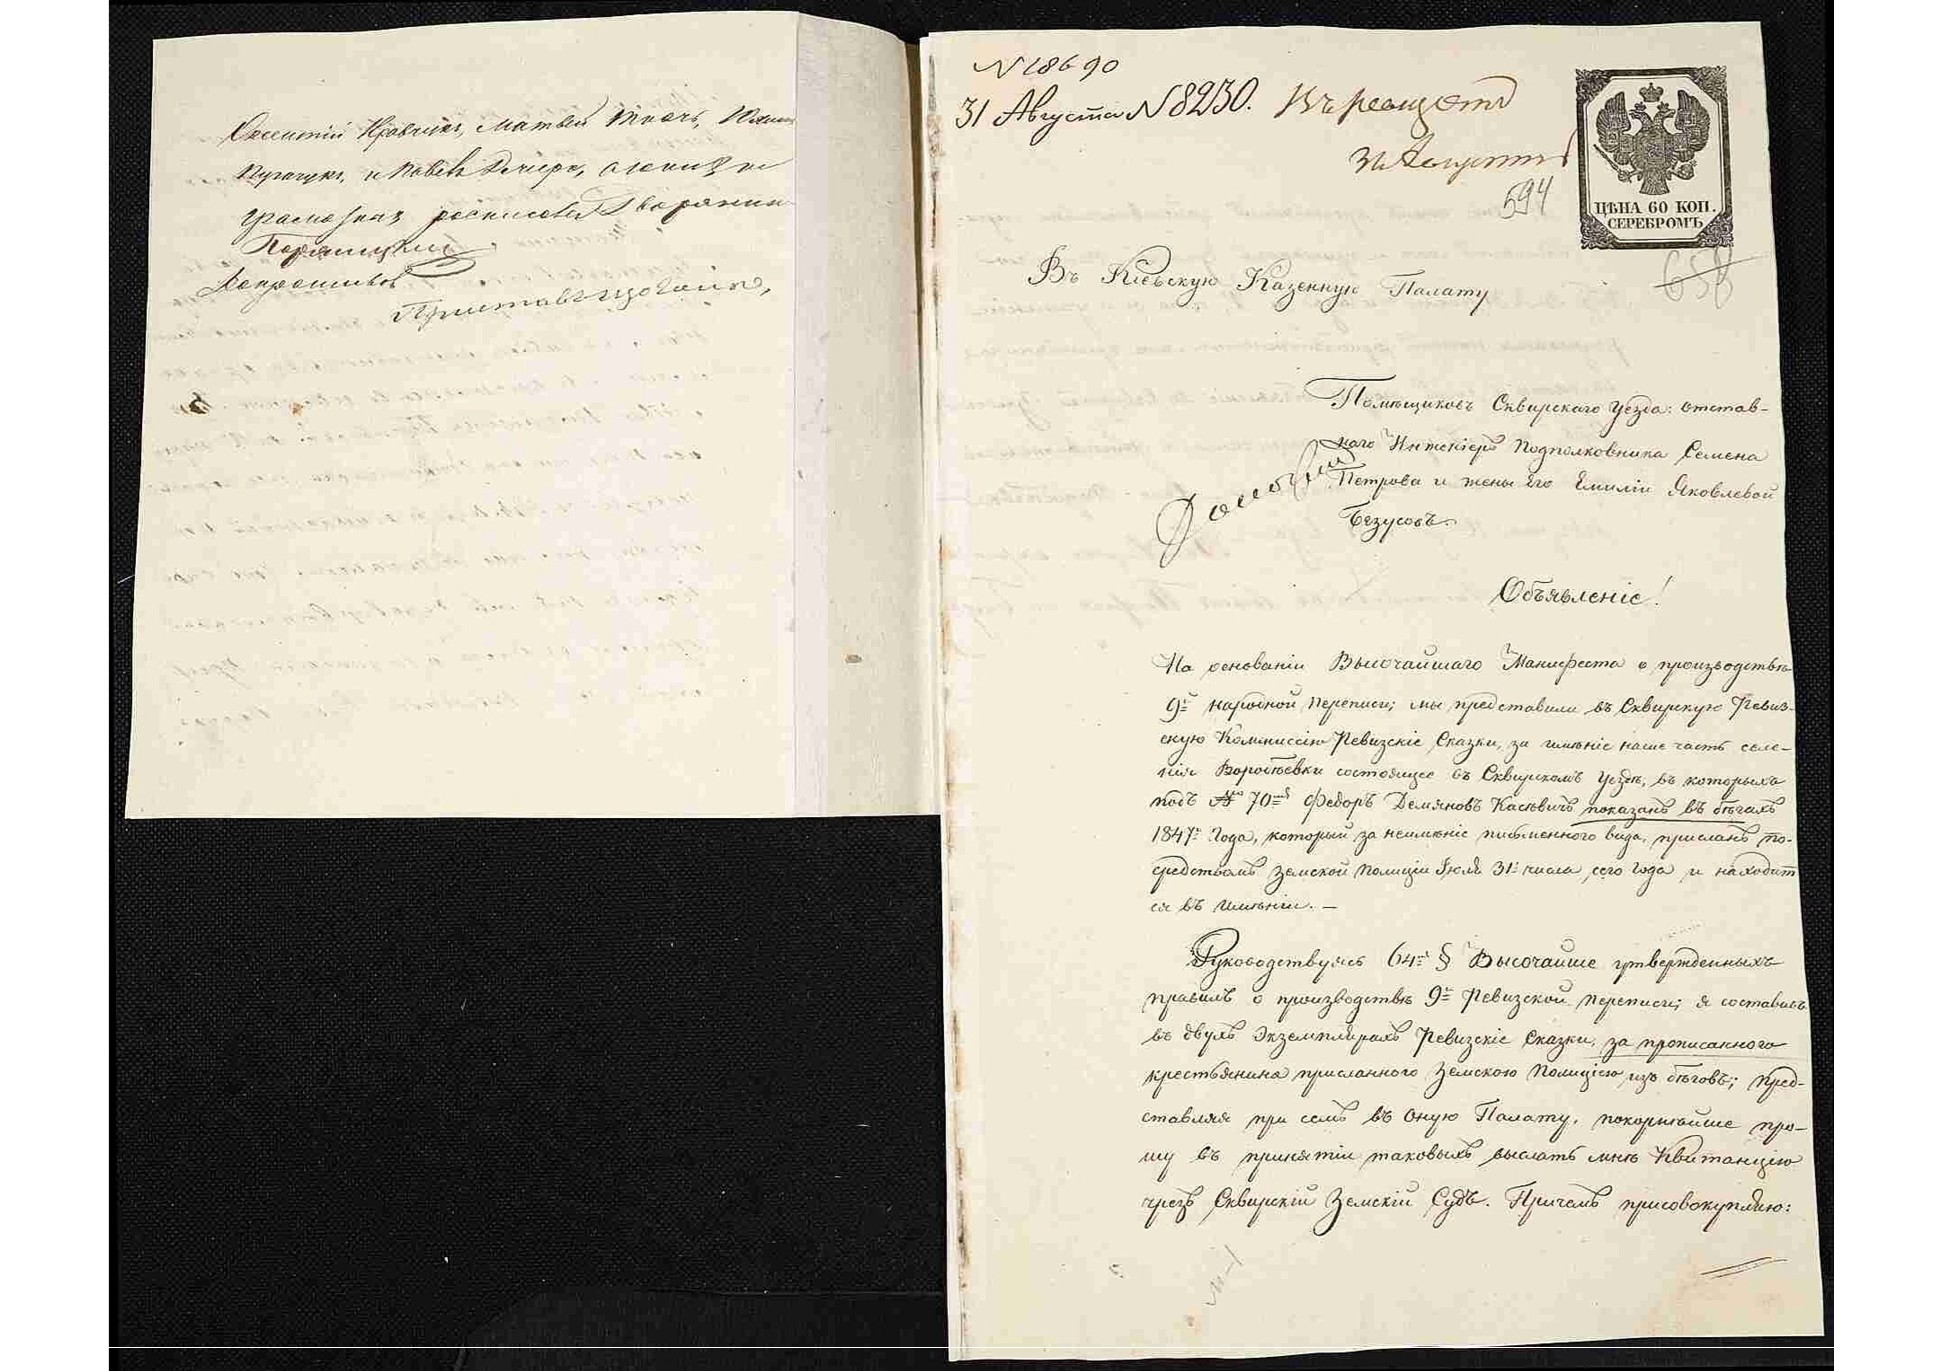 Авксентій Кравчукъ, Матвей Ткачъ,
и
грамотная росписался Дворянинъ
Допрашивалъ
Приставъ
N 18690
31 Августа N 8230. Въ реэстръ
31 Августа
594
ЦѢНА 60 КОП.
СЕРЕБРОМЪ
658
Въ Кіевскую Казенную Палату
Помѣщиковъ Сквирскаго уезда: отстав-
наго Инженеръ Подполковника Семена
Петрова и жены его Емиліи Яковлевой
Безусовъ.
Объявленіе!
На основаніи Высочайшаго Манифеста о производствѣ
9й народной переписи; мы представили въ Сквирскую Ревиз-
скую Коммиссію Ревизскіе Сказки, за имѣніе наше часть селе-
нія Воробіевки состоящее въ Сквирскомъ уездѣ, въ которыхъ
подъ № 70мъ Федоръ Демяновъ Касѣвичъ показанъ въ бѣгахъ
1847го года, который за неимѣніе письменного вида, присланъ по-
средствомъ Земской полиціи Іюля 31го числа сего года и находит
ся въ имѣніи. —
Руководствуясь 64мъ § Высочайше утвержденныхъ
правилъ о производствѣ 9й Ревизской переписи; я составивъ
въ двухъ экземплярахъ Ревизскіе Сказки, за прописанного
крестьянина присланного Земскою Полиціею изъ бѣговъ; пред-
ставляя при семъ въ оную Палату, покорнѣйше про-
шу въ принятіи таковыхъ выслать мнѣ Квитанцію
чрезъ Сквирскій Земскій Судъ. Причемъ присовокупляю: